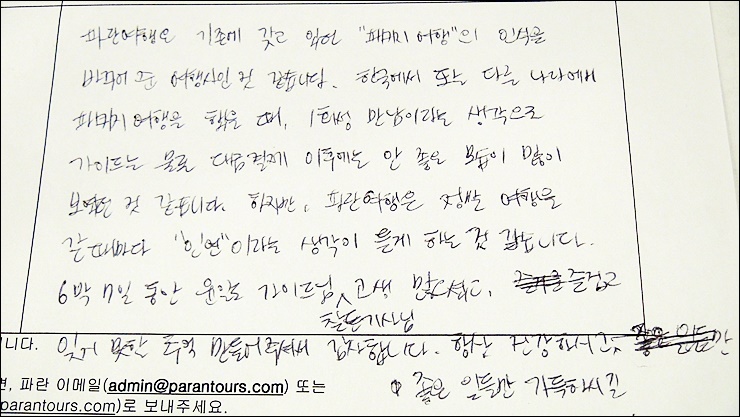 파란여행은 기존에 갖고 있던 "패키지 여행"의 인식을
바꾸어 준 여행사인 것 같습니다. 한국에서 또는 다른 나라에서
패키지 여행을 했을 때, 1회성 만남이라는 생각으로
가이드는 물론 대금결제 이후에는 안 좋은 모습이 많이
보였던 것 같습니다. 하지만, 파란여행은 정말 여행을
갈 때마다 "인연"이라는 생각이 들게 하는 것 같습니다.
6박 7일 동안 가이드님, 고생 많으셨고, 즐겁고
찰튼기사님
니다. 잊지 못할 추억 만들어주셔서 감사합니다. 항상 건강하시고 좋은 일들만
변, 파란 이메일(admin@parantours.com) 또는
좋은 일들만 가득하시길
parantours.com)로 보내주세요.